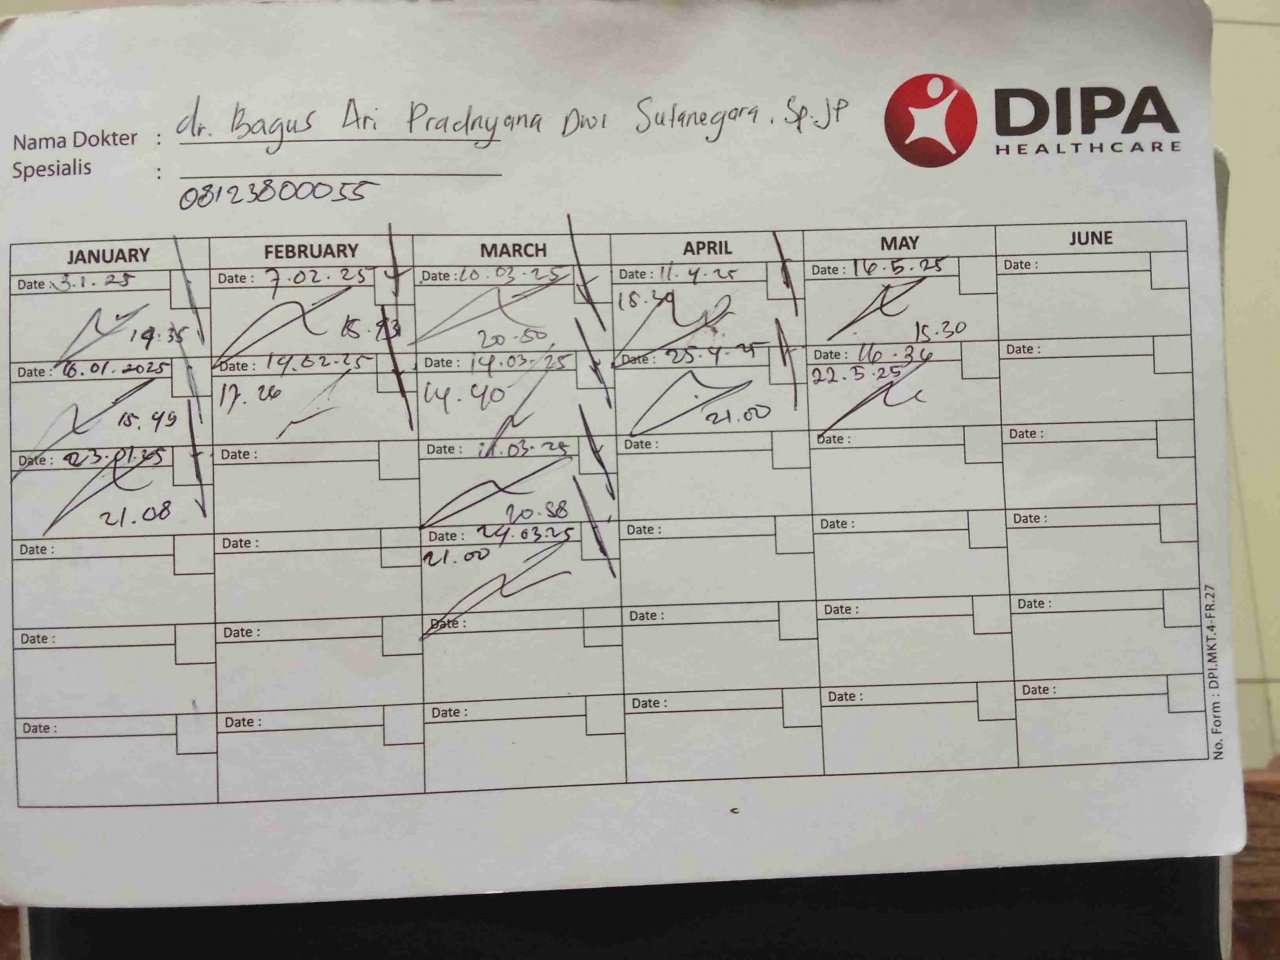 DIPA
HEALTHCARE
Nama Dokter : dr. Bagus Ari Pradnyana Dwi Sutanegara. Sp.JP
Spesialis :
08123800055
JANUARY FEBRUARY MARCH APRIL MAY JUNE
Date : 3.1.25 Date : 7.02.25 Date : 10.03.25 Date : 11.4.25 Date : 16.5.25 Date :
19.35 20.50 15.30
Date : 16.01.2025 Date : 14.02.25 Date : 14.03.25 Date : 25.4.25 Date : 16.34 Date :
15.49 17.26 14.40 21.00 22.5.25
Date : 23.01.25 Date : Date : Date : Date : Date :
21.08 20.58
Date : Date : Date : 24.03.25 Date : Date : Date :
21.00
Date : Date : Date : Date : Date : Date :
Date : Date : Date : Date : Date : Date :
No. Form : DPI.MKT.4-FR.27